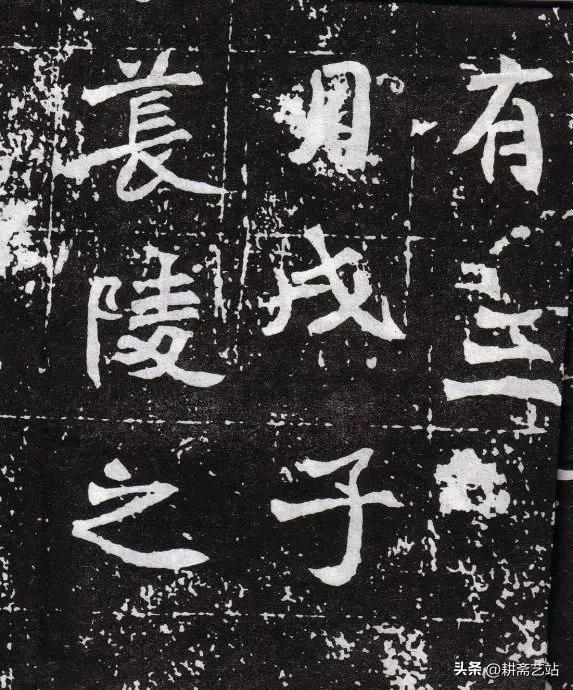 有
月戊子
萇陵之
头条 @耕斋艺站